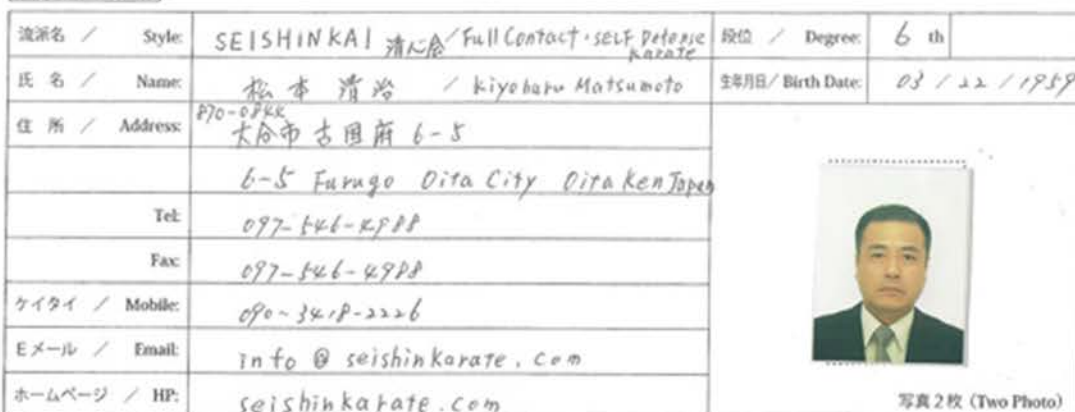 流派名 / Style: SEISHINKAI 清心会 / Full Contact・SELF Defense Karate 段位 / Degree: 6 th
氏 名 / Name: 松本 清治 / Kiyoharu Matsumoto 生年月日 / Birth Date: 03 / 22 / 1959
住 所 / Address: 870-0844
大分市古国府 6-5
6-5 Furugo Oita City Oita Ken Japan
Tel: 097-546-4988
Fax: 097-546-4988
ケイタイ / Mobile: 090-3418-2226
Eメール / Email: info @ seishinkarate.com
ホームページ / HP: seishinkarate.com
写真2枚 (Two Photo)